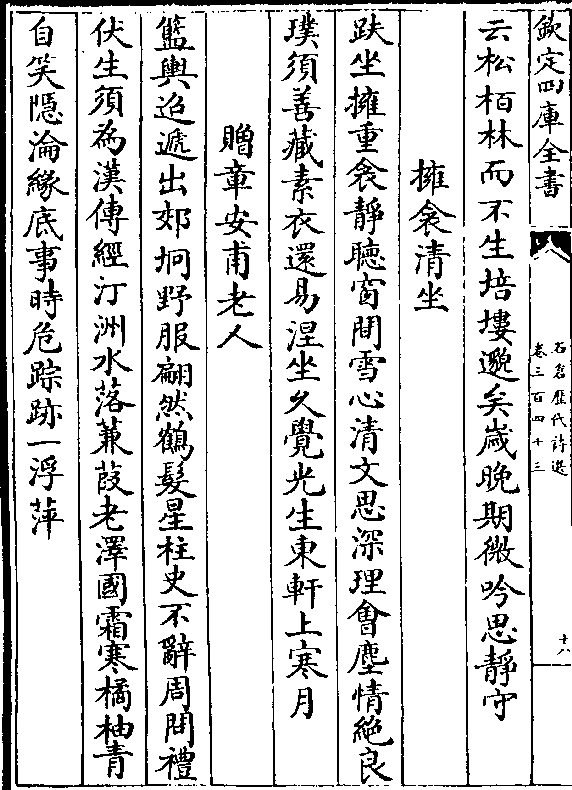 欽定四庫全書
石倉歷代詩選
卷三百四十三
十八
云松栢林而不生培塿邈矣歲晚期微吟思靜守
擁衾清坐
趺坐擁重衾靜聴窗間雪心清文思深理㑹塵情絶良
璞須善藏素衣還易涅坐久覺光生東軒上寒月
贈章安甫老人
籃輿迢遞出郊坰野服翩然鶴髮星柱史不辭周問禮
伏生須為漢傳經汀洲水落蒹葭老澤國霜寒橘柚青
自笑隠淪緣底事時危踪跡一浮萍